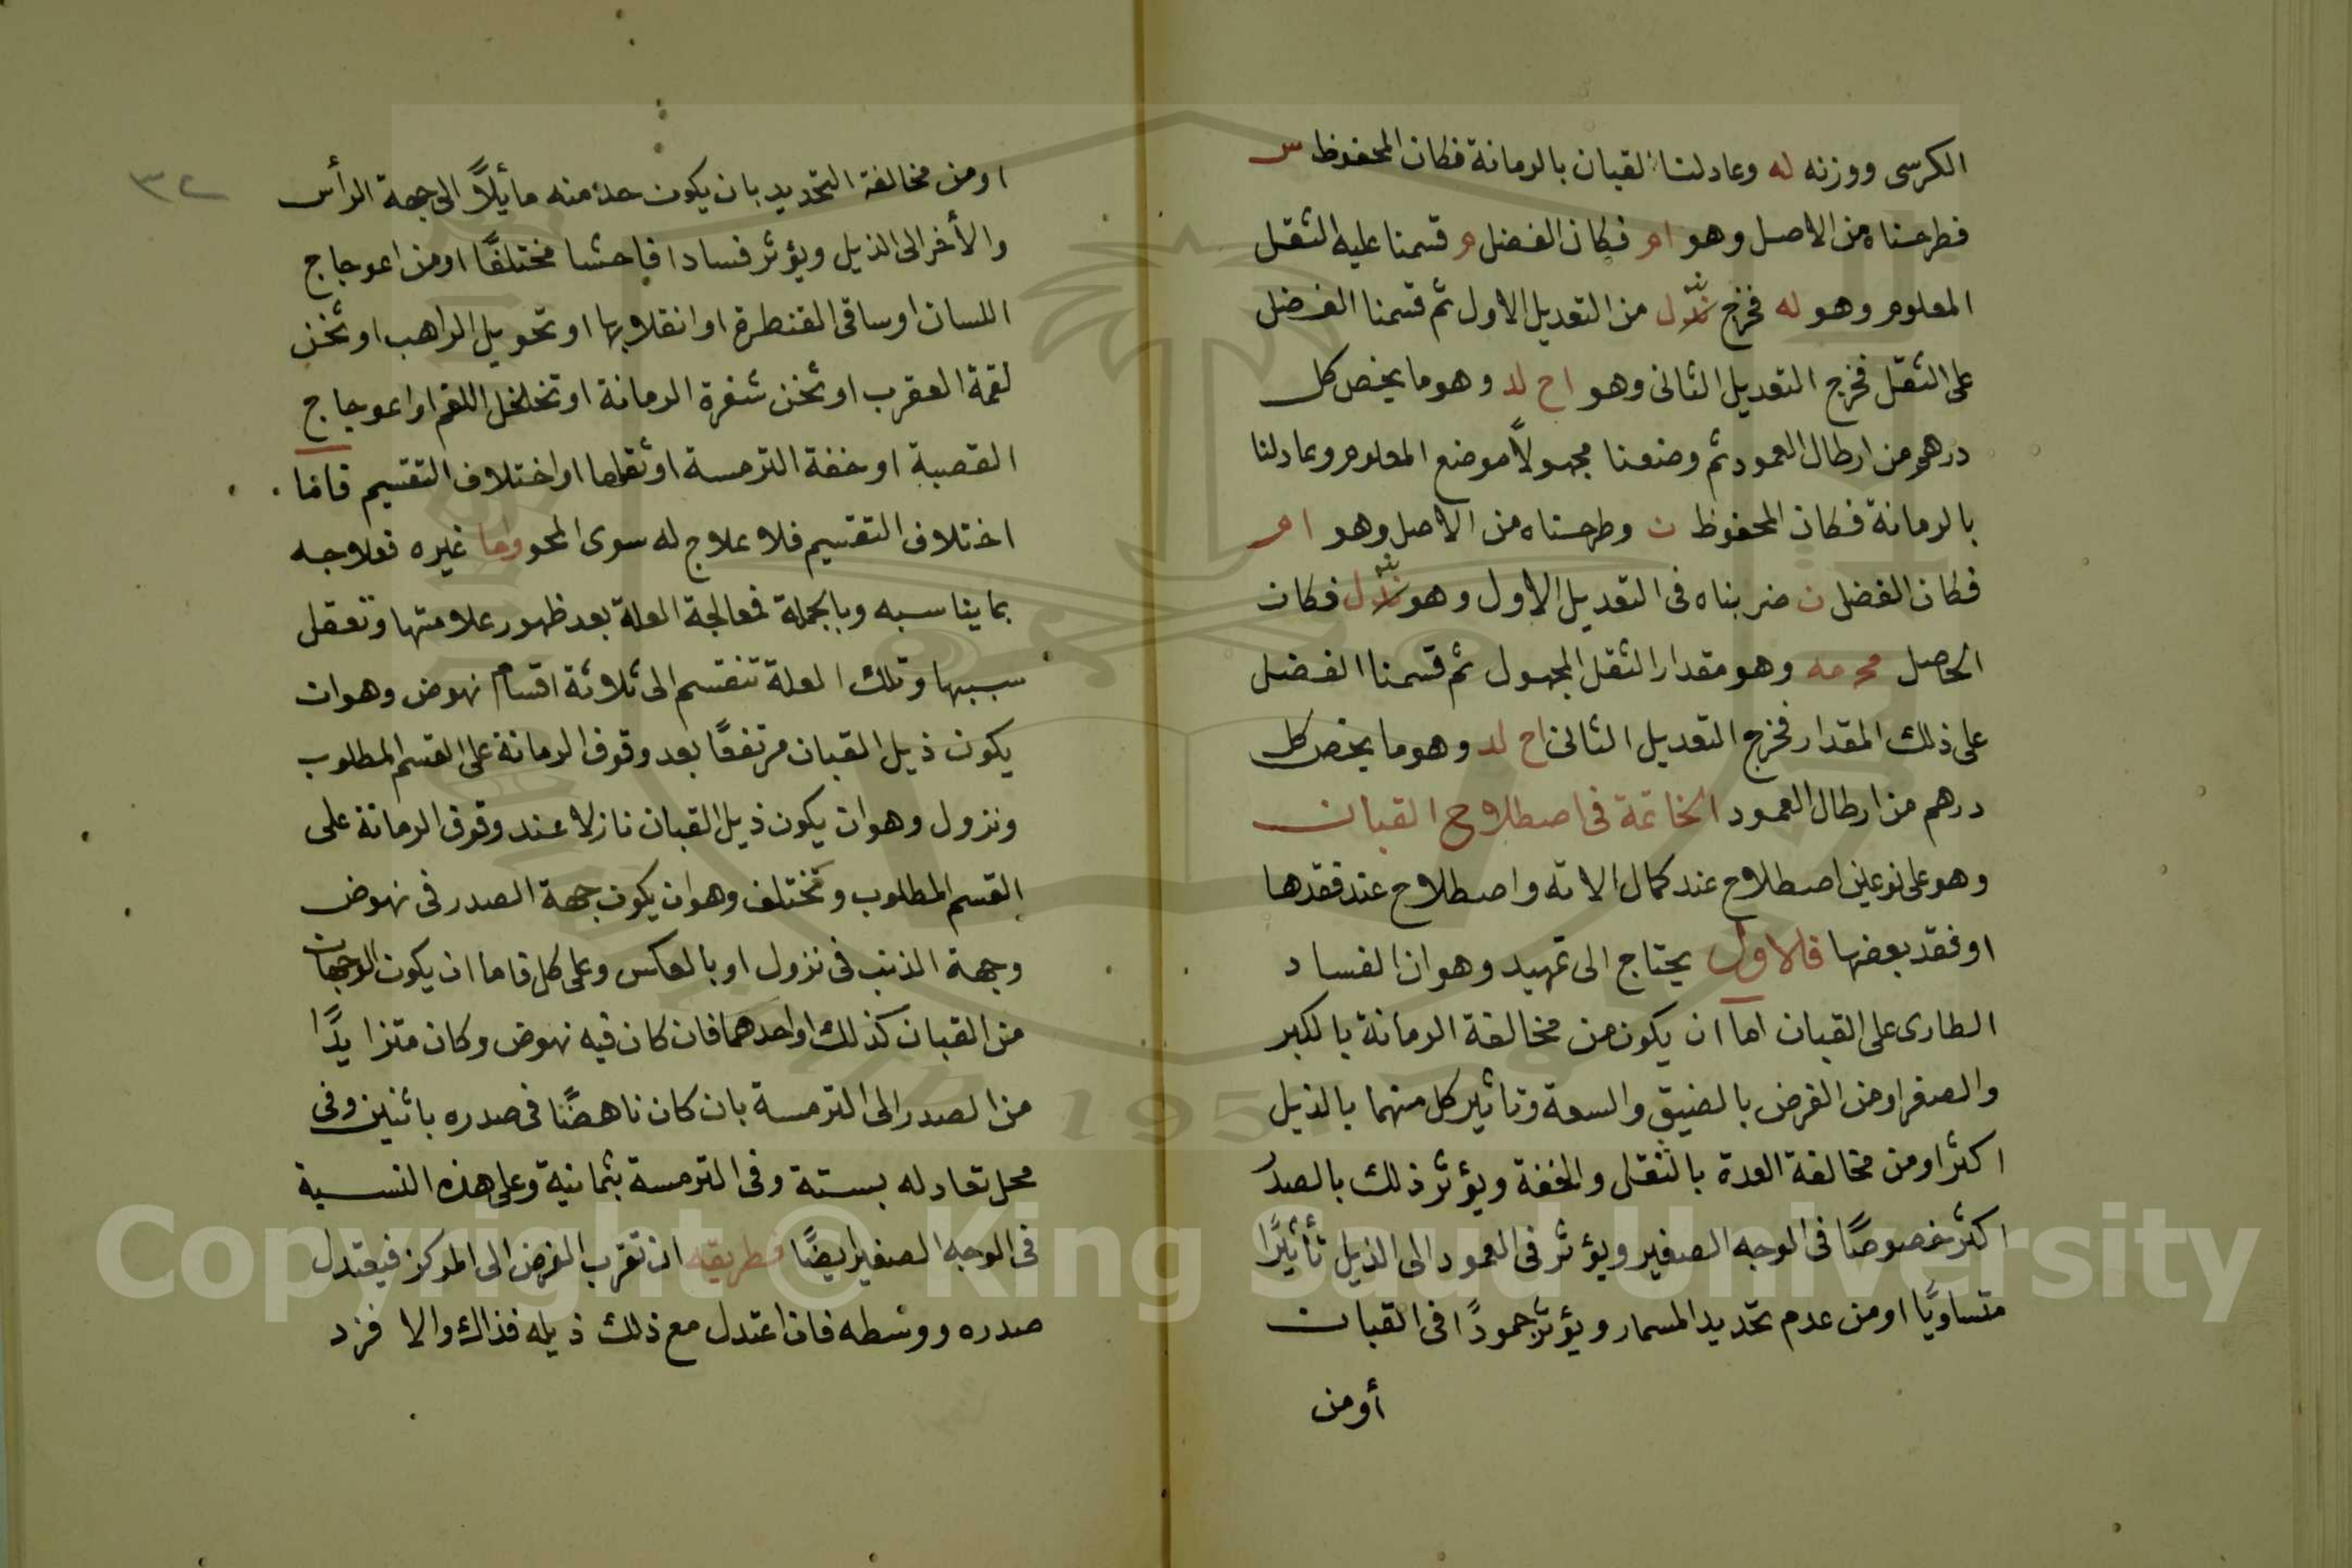 الكرسى ووزنه له وعادلنا القبان بالرمانة فكان المحفوظ س
فطرحناه من الاصل وهو ام فكان الفضل م قسمنا عليه الثقل
المعلوم وهو له فخرج من التعديل الاول ثم قسمنا الفضل
على الثقل فخرج التعديل الثانى وهو اح لد وهو ما يخص كل
درهم من ارطال العمود ثم وضعنا مجهولاً موضع المعلوم وعادلنا
بالرمانة فكان المحفوظ ن وطرحناه من الاصل وهو ام
فكان الفضل ن ضربناه فى التعديل الاول وهو فكان
الحاصل وهو مقدار الثقل المجهول ثم قسمنا الفضل
على ذلك المقدار فخرج التعديل الثانى اح لد وهو ما يخص كل
درهم من ارطال العمود الخاتمة فى اصطلاح القبان
وهو على نوعين اصطلاح عند كمال الاته واصطلاح عند فقدها
او فقد بعضها فالاول يحتاج الى تمهيد وهو ان الفساد
الطارى على القبان اما ان يكون من مخالفة الرمانة بالكبر
والصغر او من الفرض بالضيق والسعة وتاثير كل منهما بالذيل
اكثر او من مخالفة العدة بالثقل والخفة ويؤثر ذلك بالصدر
اكثر خصوصًا فى الوجه الصغير ويؤثر فى العمود الى الذيل تأثيرًا
متساويًا او من عدم تحديد المسمار ويؤثر جمودًا فى القبان
أو من
٣٢
او من مخالفة التحديد بان يكون حده منه مأيلاً الى جهة الرأس
والأخر الى الذيل ويؤثر فسادا فاحشا مختلفًا او من اعوجاج
اللسان او ساقى القنطرة او انقلابها او تحويل الراهب او ثخن
لقمة العقرب او ثخن شفرة الرمانة او تخلخل اللقم او اعوجاج
القصبة او خفة الترمسة او ثقلها او اختلاف التقسيم فاما
اختلاف التقسيم فلا علاج له سوى المحو واما غيره فعلاجه
بما يناسبه وبالجملة فمعالجة العلة بعد ظهور علامتها وتعقل
سببها وتلك العلة تنقسم الى ثلاثة اقسام نهوض وهوان
يكون ذيل القبان مرتفعًا بعد وقوف الرمانة على القسم المطلوب
ونزول وهوان يكون ذيل القبان نازلا عند وقوف الرمانة على
القسم المطلوب وتختلف وهوان يكون جهة الصدر فى نهوض
وجهة الذنب فى نزول او بالعكس وعلى كل فاما ان يكون الوجهان
من القبان كذلك او احدهما فان كان فيه نهوض وكان متزايدًا
من الصدر الى الترمسة بان كان ناهضًا فى صدره باثنين وفى
محل تعادله بستة وفى الترمسة بثمانية وعلى هذه النسبة
فى الوجه الصغير ايضًا فطريقه ان تقرب الفرض الى المركز فيعتدل
صدره ووسطه فان اعتدل مع ذلك ذيله فذاك والا فزد
Copyright © King Saud University